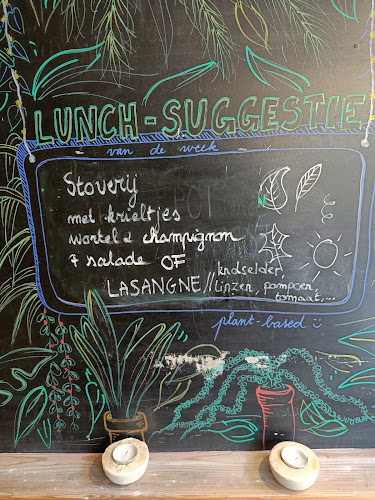 LUNCH-SUGGESTIE
van de week
Stoverij
met krieltjes
wortel & champignon
+ salade OF
LASANGNE // knolselder,
linzen, pompoen,
tomaat,...
plant-based